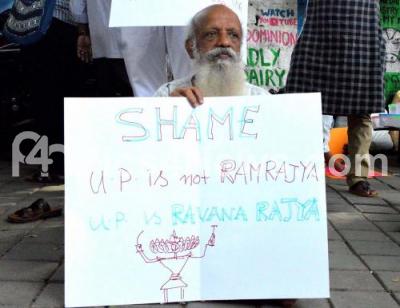 WATCH
DOMINION
DLY
AIRY
SHAME
U.P. is not RAMRAJYA
U.P. is RAVANA RAJYA